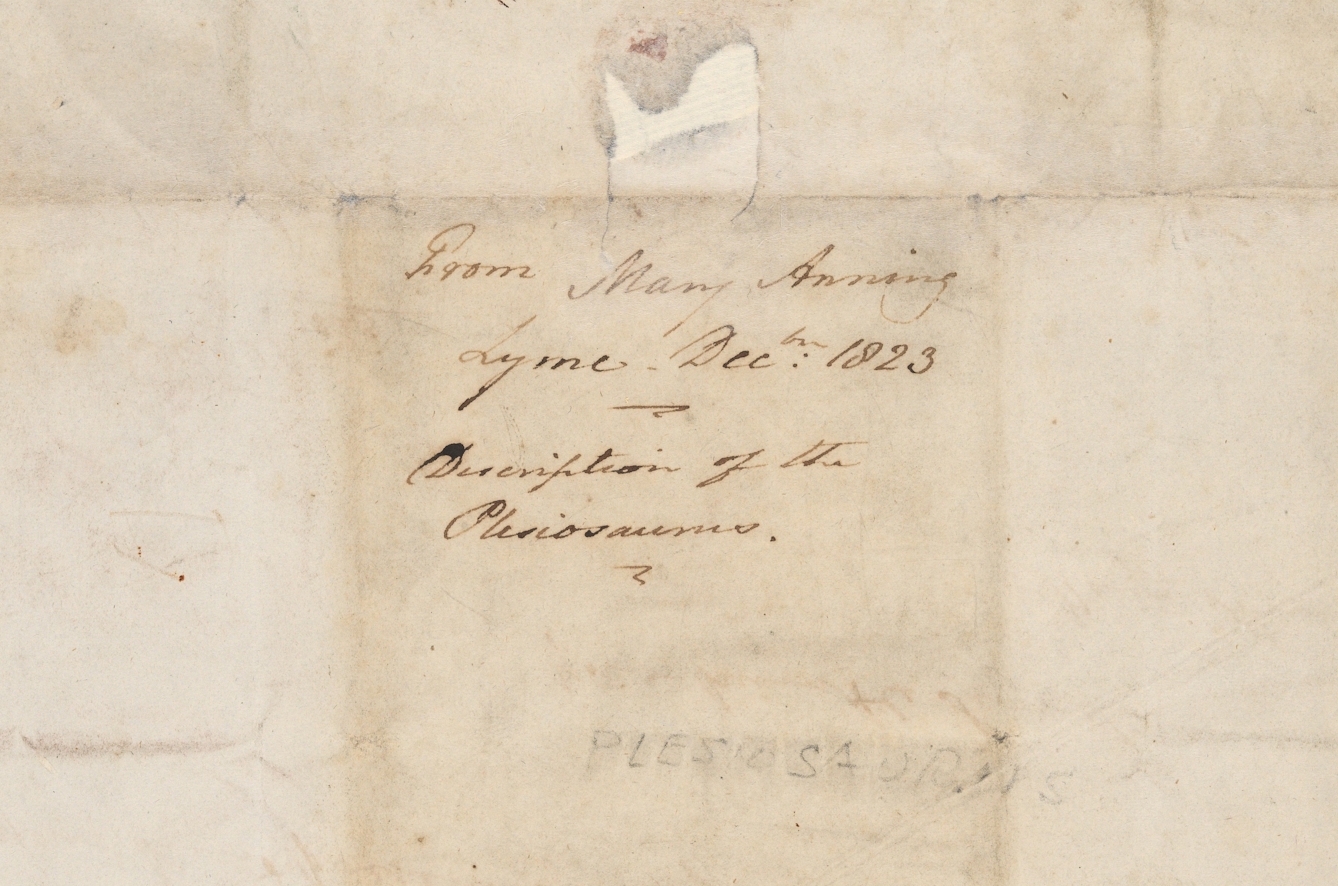 From Mary Anning
Lyme - Decbr: 1823
Description of the
Plesiosaurus.
PLESIOSAURUS